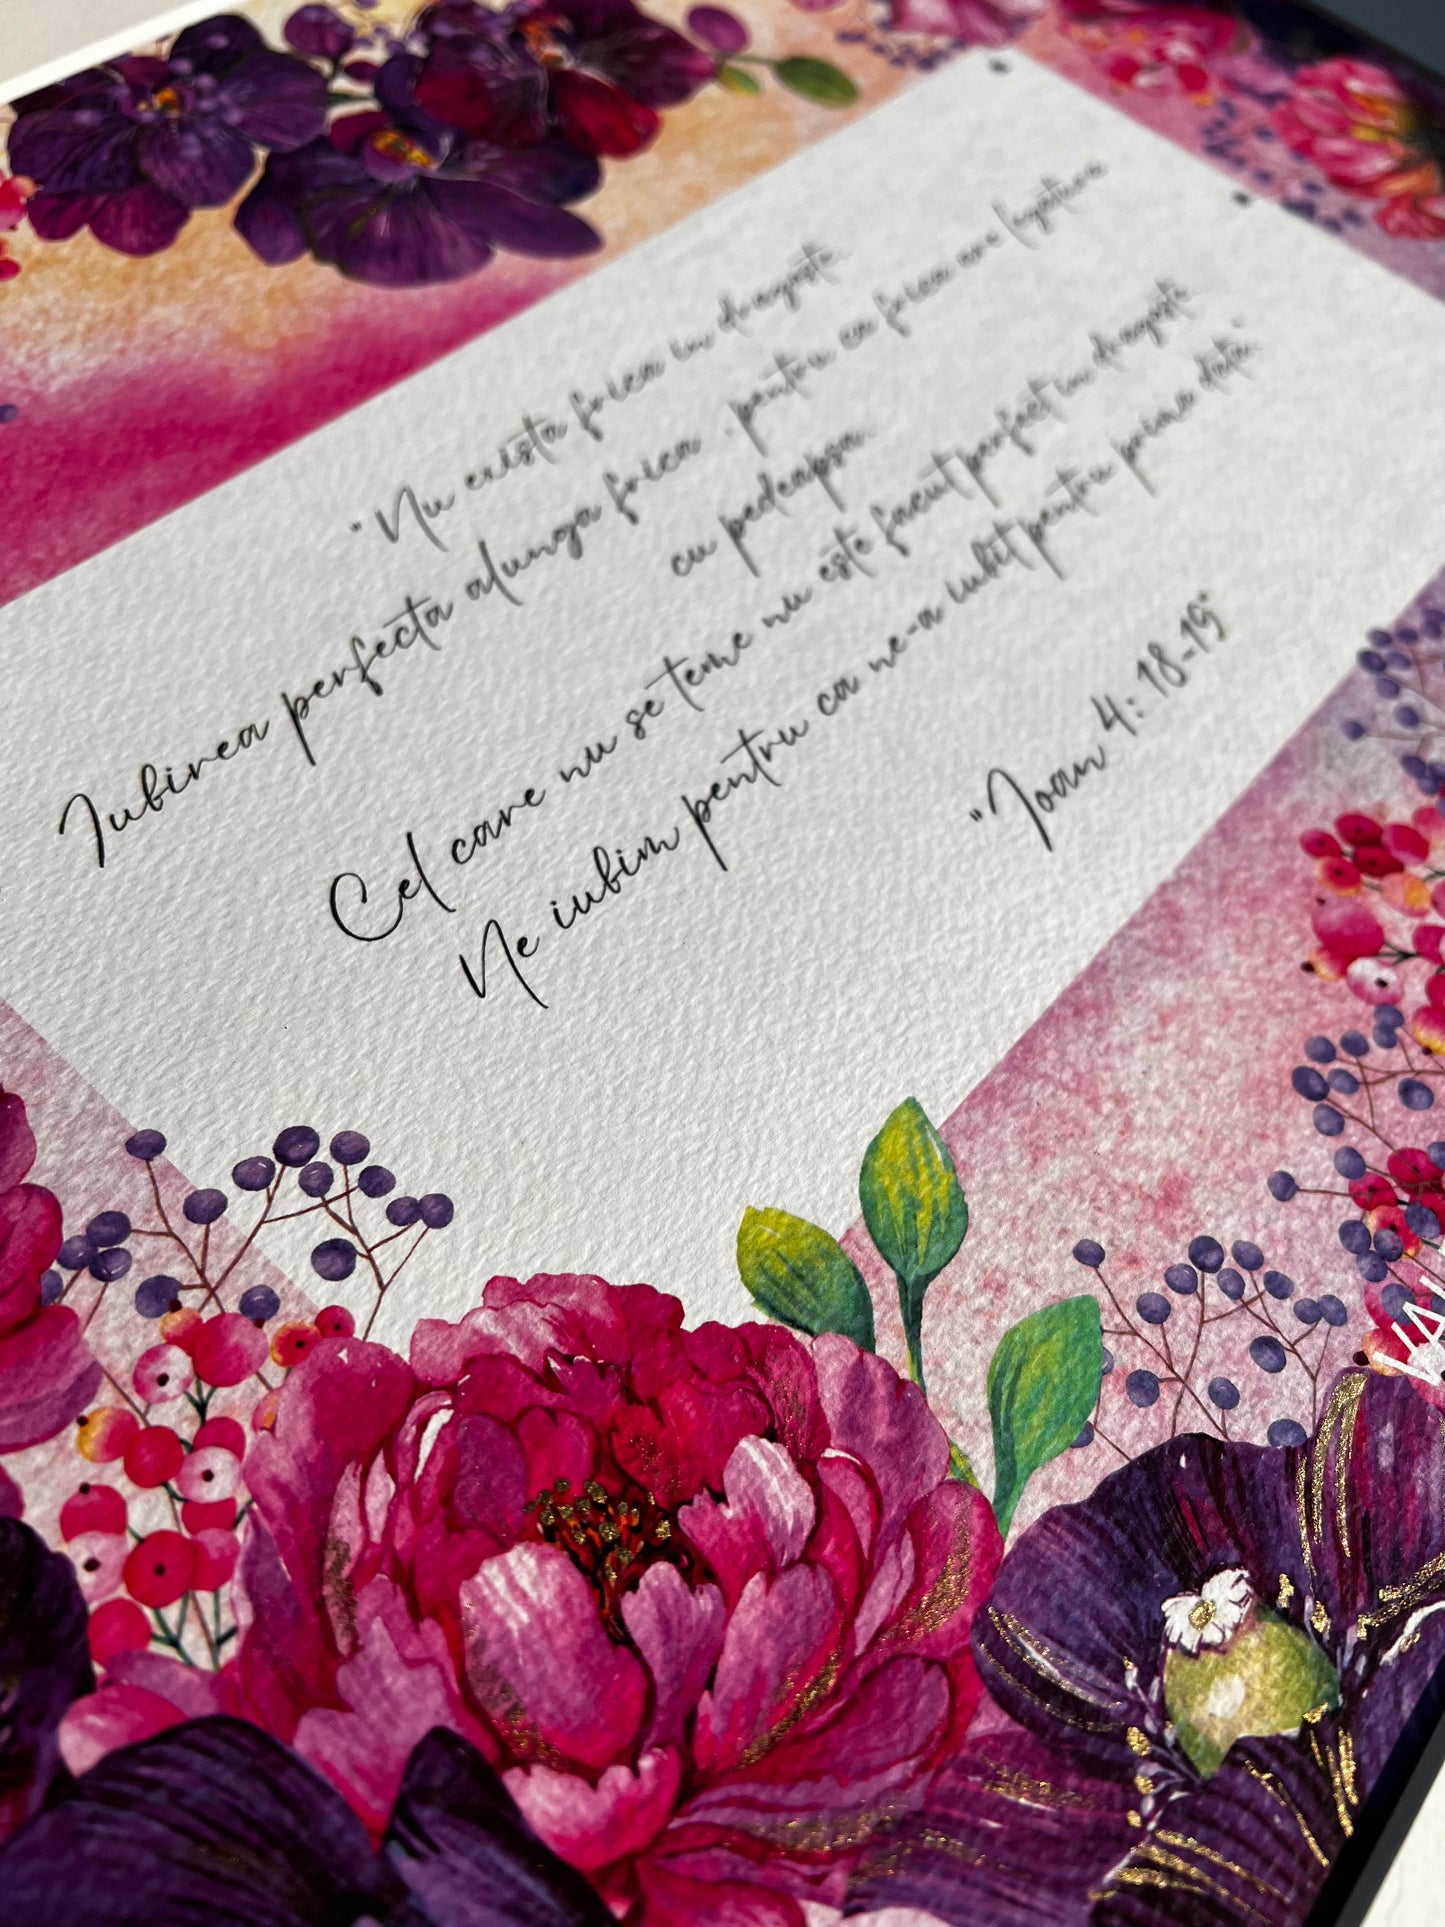 "Nu exista frica in dragoste
Iubirea perfecta alunga frica , pentru ca frica are legatura
cu pedeapsa.
Cel care nu se teme nu este facut perfect in dragoste
Ne iubim pentru ca ne-a iubit pentru prima data."
"Ioan 4: 18-19"